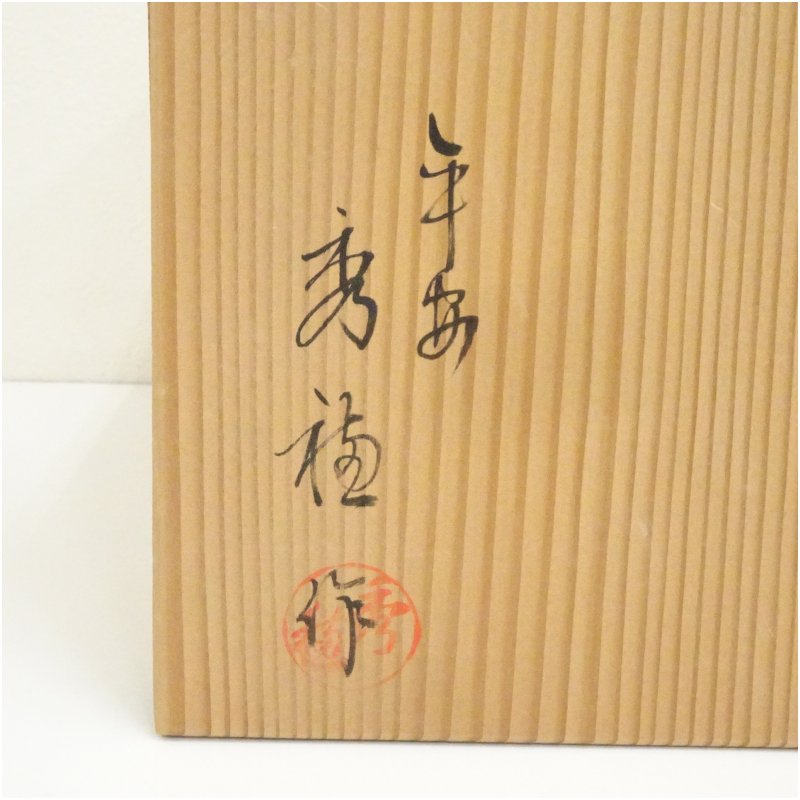 平安
秀穂
作
秀穂